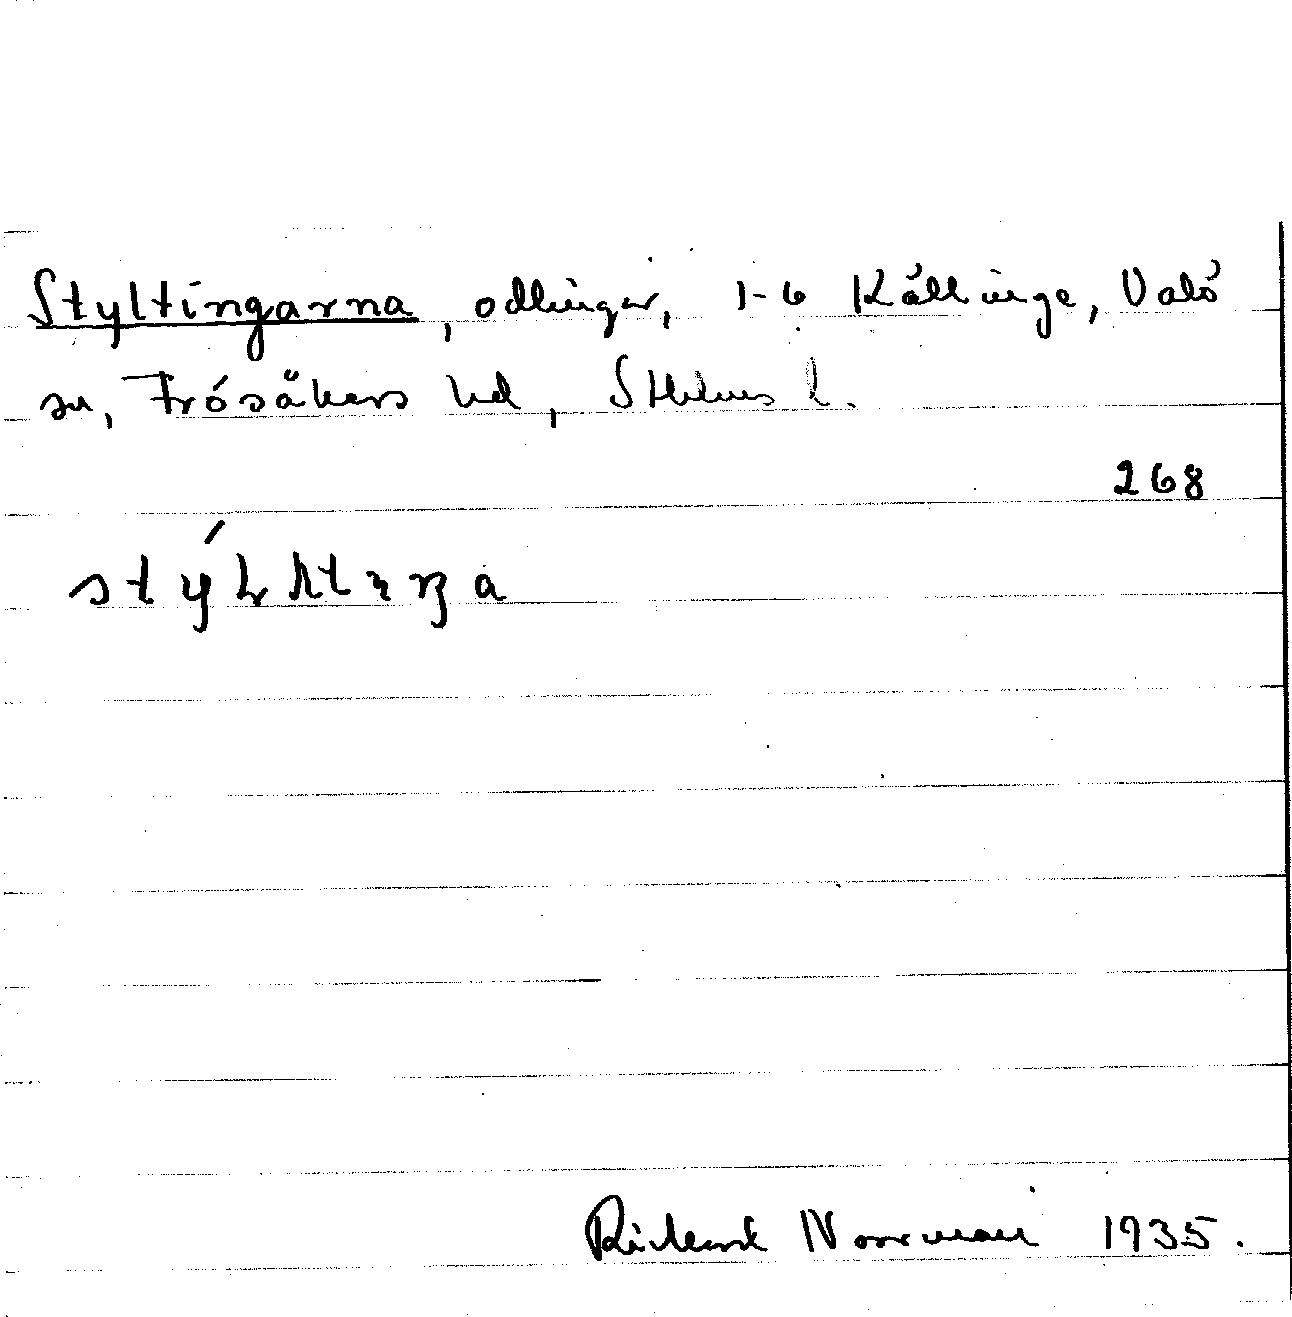 Styltingarna, odlingar, 1-6 Källinge, Valö
sn, Frösåkers hd, Sthlms l.
268
Rickard Norrman 1935.